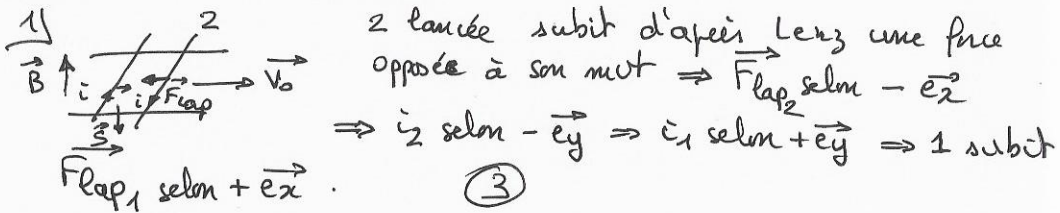 1)
2
B
i
i
Flap
V₀
S
2 lancée subit d'après Lenz une force
opposée à son mvt ⇒ Flap₂ selon - ex
⇒ i₂ selon - ey ⇒ i₁ selon + ey ⇒ 1 subit
Flap₁ selon + ex .
3